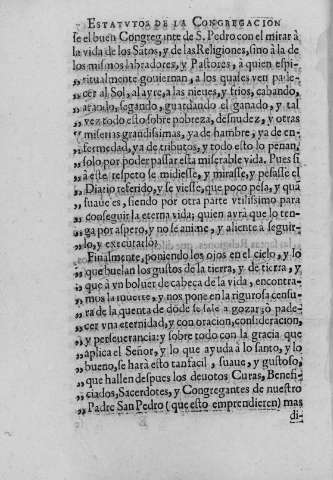 ESTATVTOS DE LA CONGREGACION
se el buen Congregante de S. Pedro con el mirar à
la vida de los Sãtos, y de las Religiones, sino à la de
los mismos labradores, y Pastores, a quien espi-
„ ritualmente gouiernan, a los quales ven pade-
„ cer al Sol, al ayre, a las nieues, y frios, cabando,
„ arando, segando, guardando el ganado, y tal
„ vez todo esto sobre pobreza, desnudez, y otras
„ miserias grandissimas, ya de hambre, ya de en-
„ fermedad, ya de tributos, y todo esto lo penan,
„ solo por poder passar esta miserable vida. Pues si
„ à este respeto se midiesse, y mirasse, y pesasse el
„ Diario referido, y se viesse, que poco pesa, y quã
„ suaue es, siendo por otra parte vtilissimo para
„ conseguir la eterna vida; quien avrà que lo ten-
„ ga por aspero, y no se anime, y aliente à seguir-
„ lo, y executarlo?
„ Finalmente, poniendo los ojos en el cielo, y lo
„ que buelan los gustos de la tierra, y de tierra, y
„ que à vn boluer de cabeça de la vida, encontra-
„ mos la muerte, y nos pone en la rigurosa censu-
„ ra de la quenta de dõde se sale a gozar; ò pade-
„ cer vna eternidad, y con oracion, consideracion,
„ y perseuerancia: y sobre todo con la gracia que
„ aplica el Señor, y lo que ayuda à lo santo, y lo
„ bueno, se harà esto tan facil, suaue, y gustoso,
„ que hallen despues los deuotos Curas, Benefi-
„ ciados, Sacerdotes, y Congregantes de nuestro
„ Padre San Pedro (que esto emprendieren) mas
di-